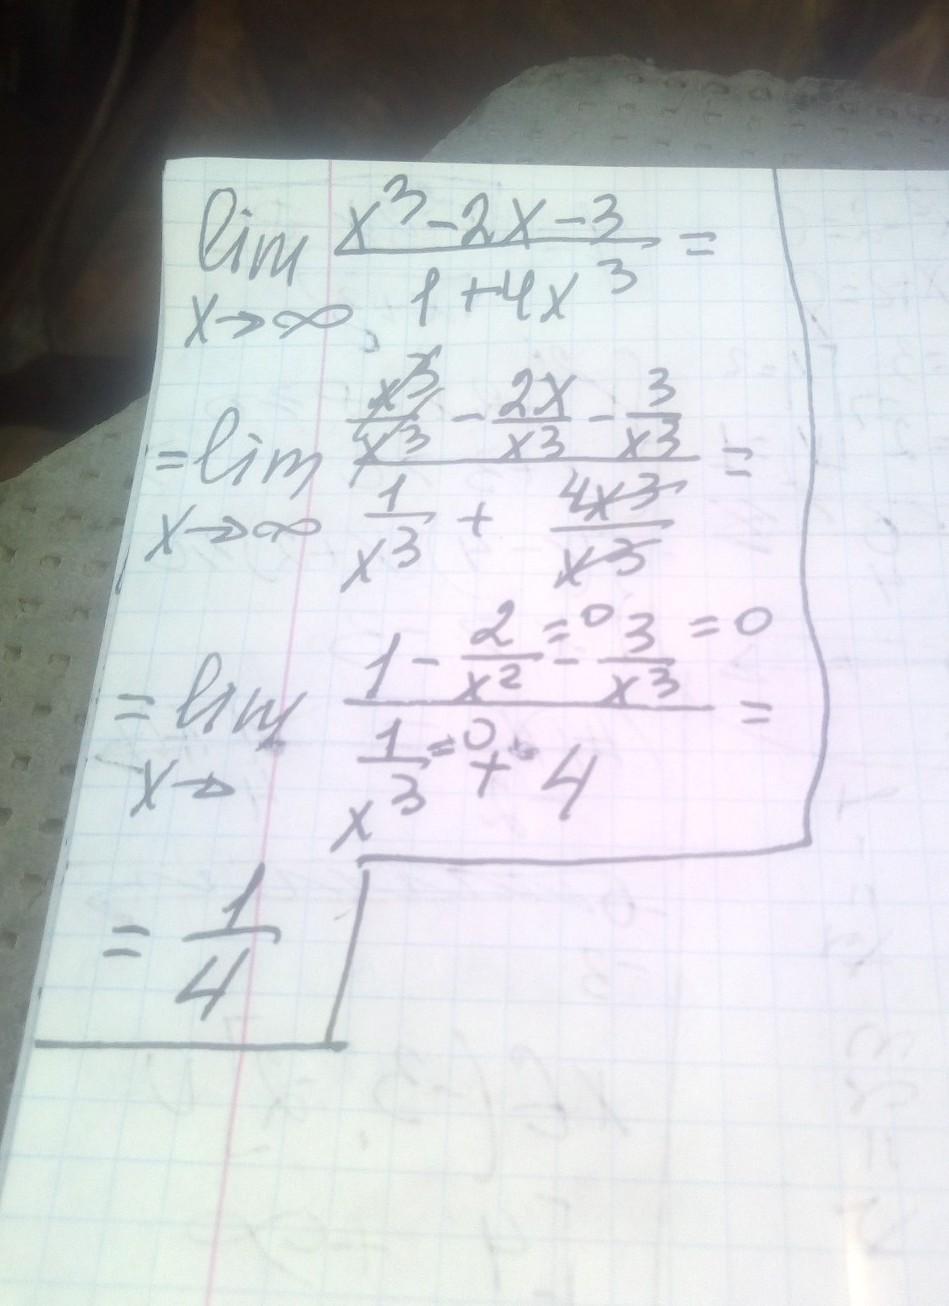 lim x→∞ (x³ - 2x - 3)/(1 + 4x³) =
= lim x→∞ (x³/x³ - 2x/x³ - 3/x³)/(1/x³ + 4x³/x³) =
= lim x→ (1 - 2/x² =0 - 3/x³ =0)/(1/x³ =0 + 4) =
= 1/4